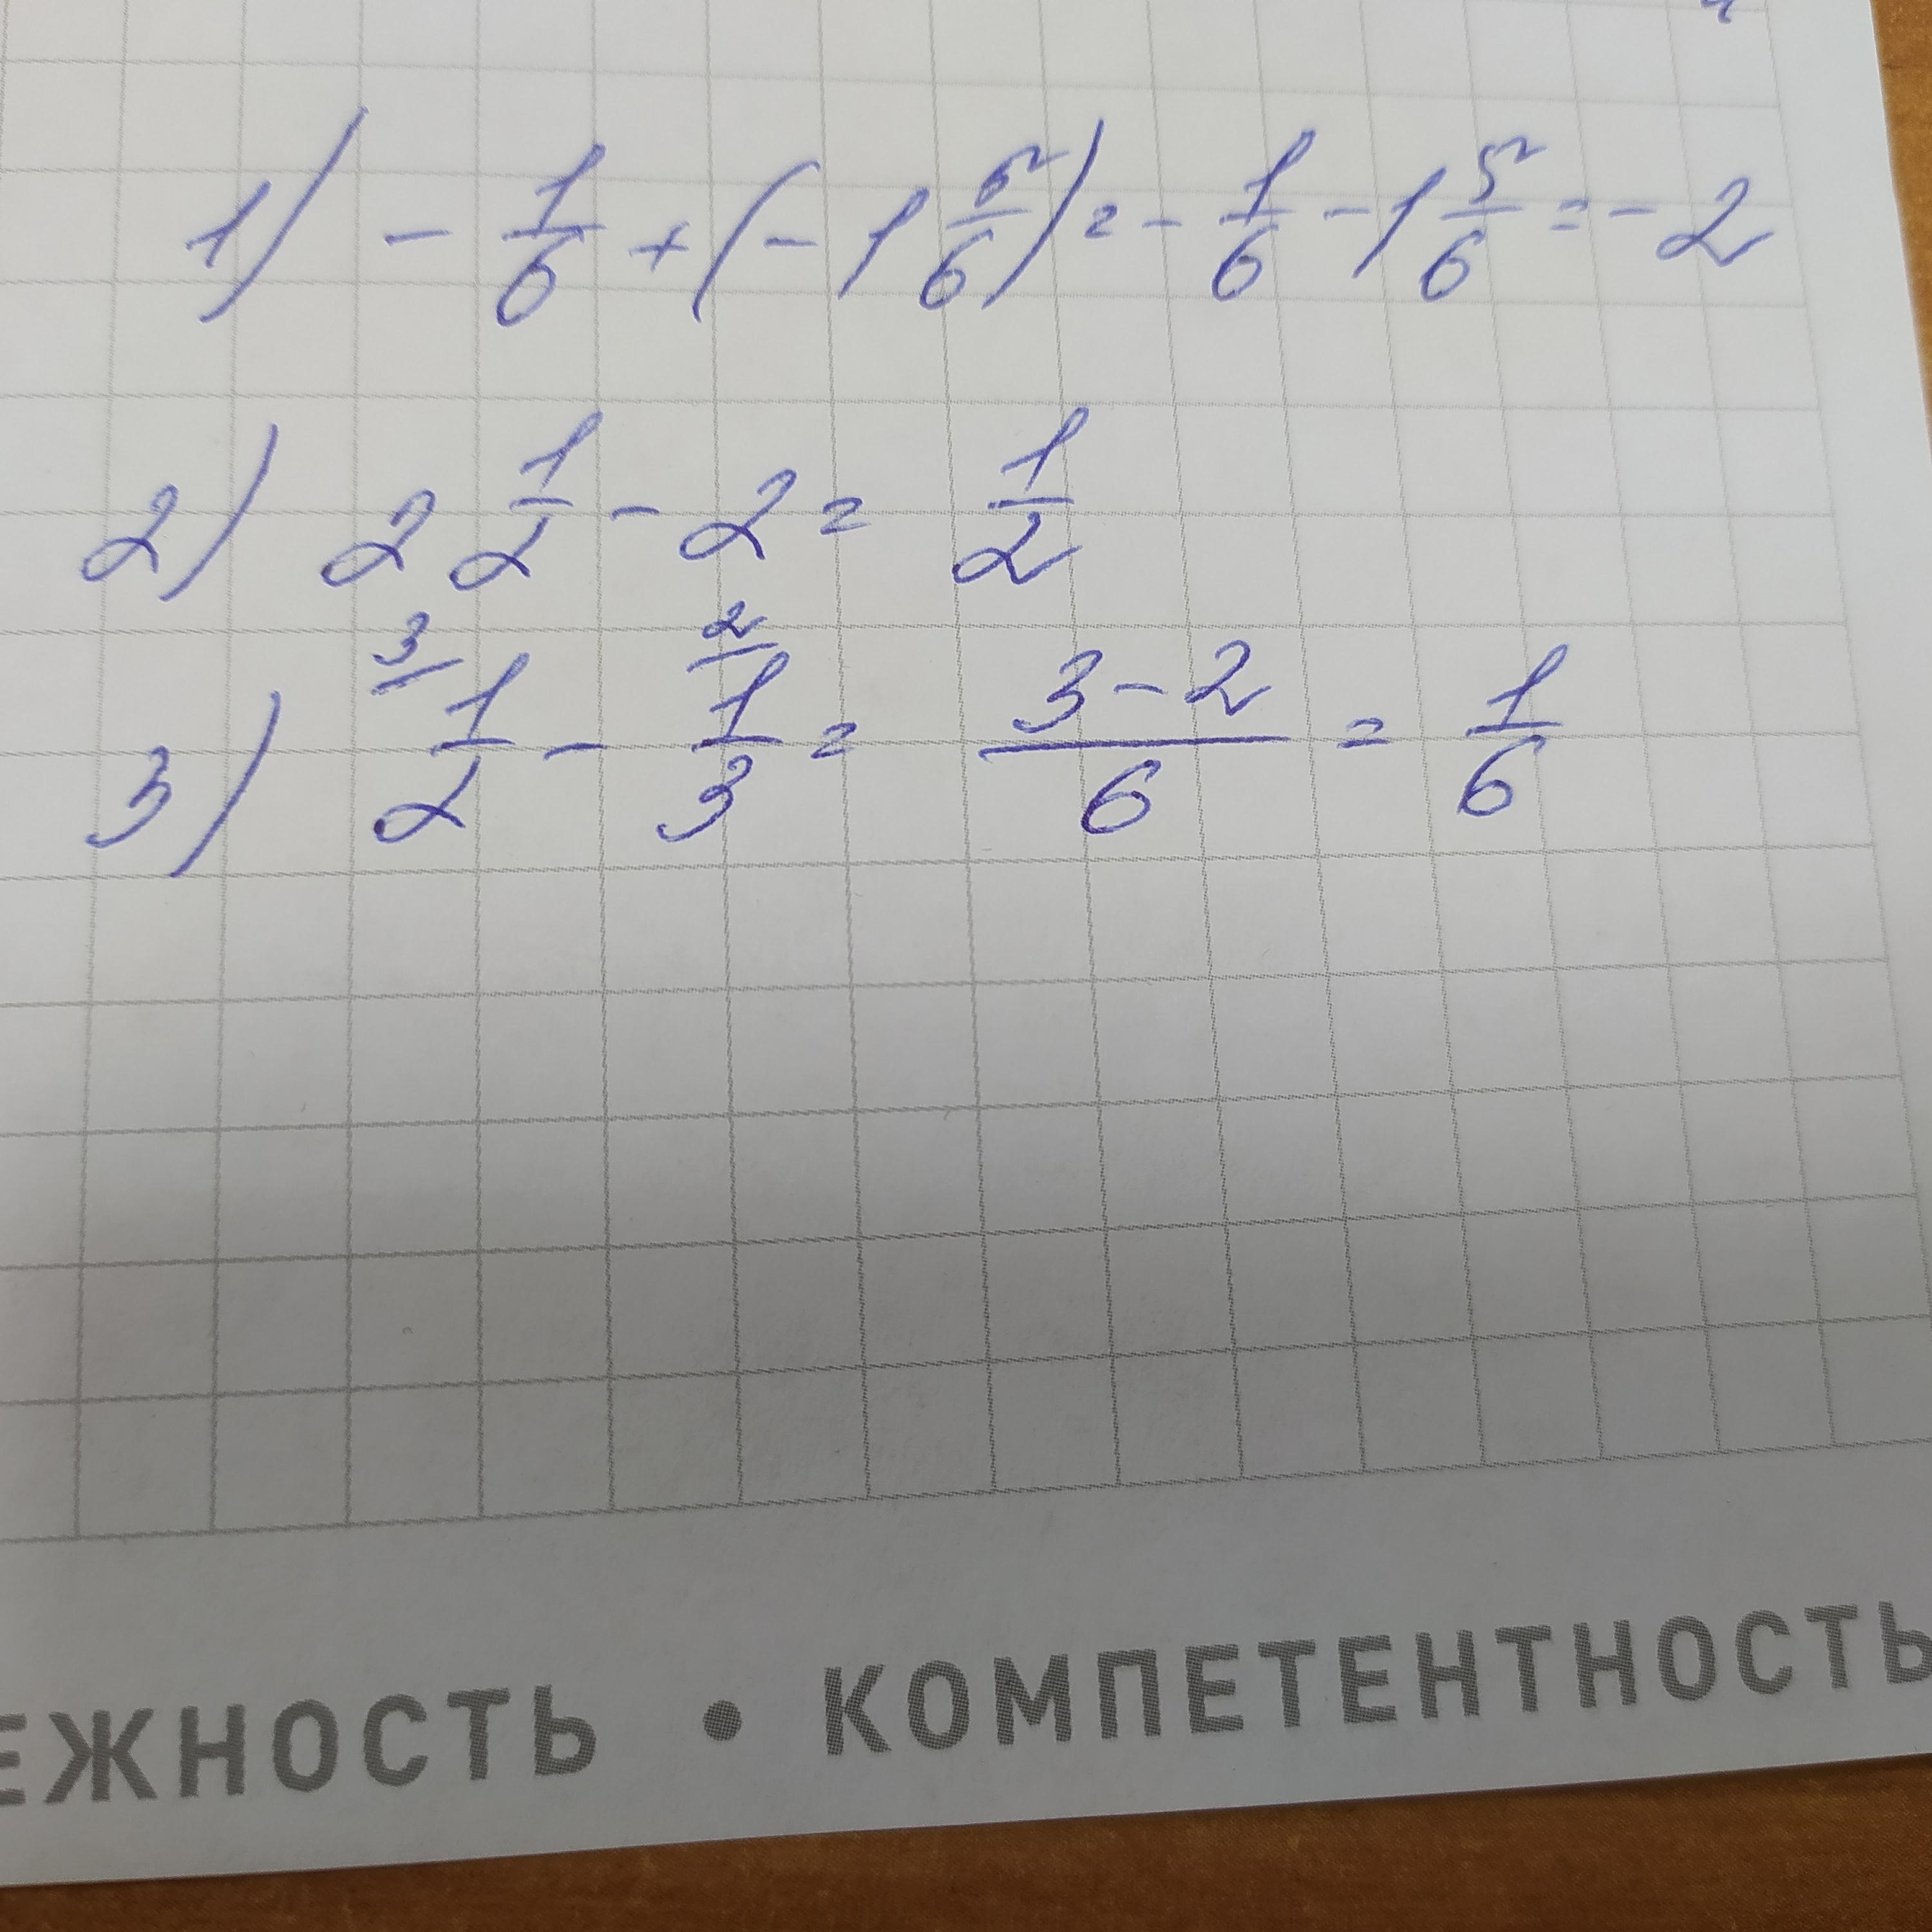 1) - 1/6 + (- 1 5/6) = - 1/6 - 1 5/6 = - 2
2) 2 1/2 - 2 = 1/2
3) 3/ 1/2 - 2/ 1/3 = (3 - 2)/6 = 1/6
ЕЖНОСТЬ • КОМПЕТЕНТНОСТЬ